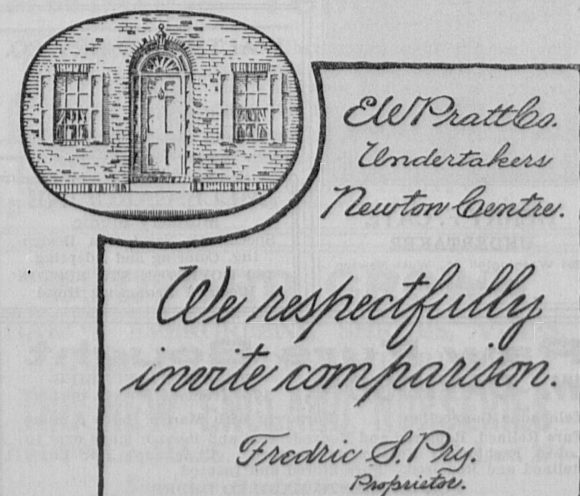 E.W. Pratt Co.
Undertakers
Newton Centre.
We respectfully
invite comparison.
Fredric S. Pry.
Proprietor.
UNDERTAKER